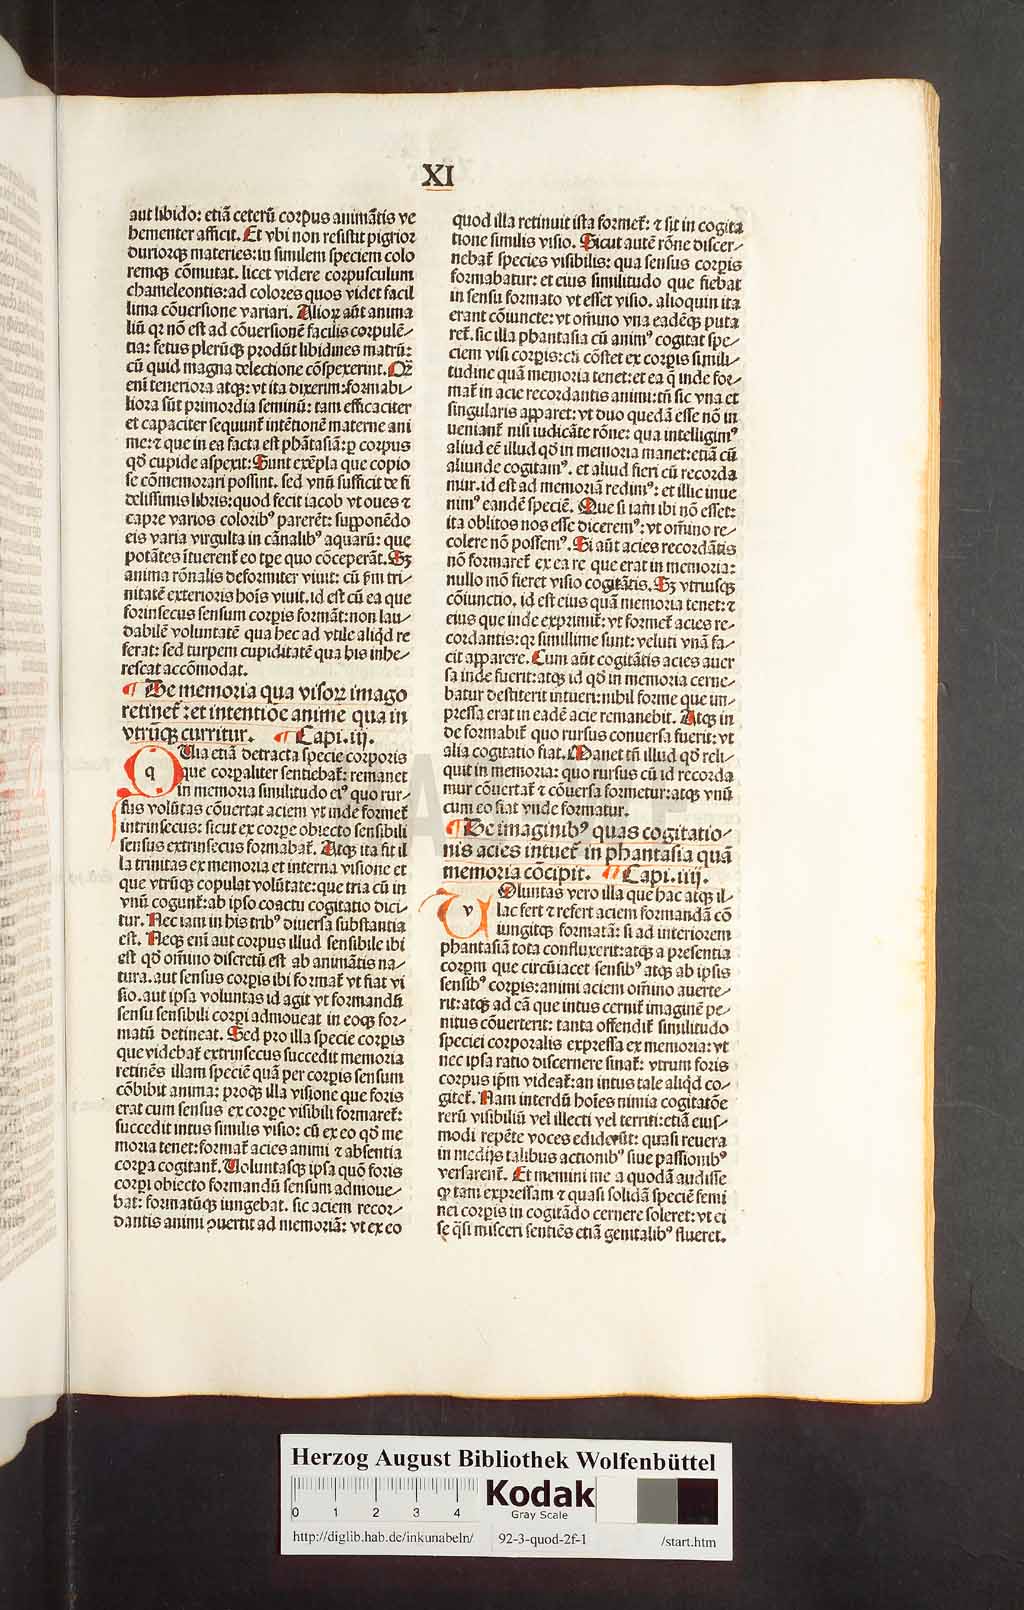 XI
aut libido: etiā ceterū corpus animātis ve
hementer afficit. Et vbi non resistit pigrior
duriorqꝫ materies: in similem speciem colo
remqꝫ cōmutat. licet videre corpusculum
chameleontis: ad colores quos videt facil
lima cōuersione variari. Alioꝝ aūt anima
liū qꝛ nō est ad cōuersionē facilis corpulē⸗
tia: fetus plerūqꝫ produ̅t libidines matrū:
cū quid magna delectione cōspexerint. Qꝫ
eni̅ teneriora atqꝫ: vt ita dixerim: formabi⸗
liora sūt primordia seminū: tam efficaciter
et capaciter sequunt̄ intētionē materne ani
me: ⁊ que in ea facta est phātasiā: ꝑ corpus
qd̄ cupide aspexit: Sunt exēpla que copio
se cōmemorari possint. sed vnū sufficit de fi
delissimis libris: quod fecit iacob vt oues ⁊
capre varios coloribꝰ parerēt: supponēdo
eis varia virgulta in cānalibꝰ aquarū: que
potātes ītuerent̄ eo tꝑe quo cōceperāt. Sꝫ
anima rōnalis deformiter viuit: cū ẜm tri⸗
nitatē exterioris hoīs viuit. id est cū ea que
forinsecus sensum corꝑis formāt: non lau⸗
dabilē voluntatē qua hec ad vtile aliqd re
ferat: sed turpem cupiditatē qua his inhe⸗
rescat accōmodat.
¶ De memoria qua visoꝝ imago
retinet̄: et intentiōe anime qua in
vtrūqꝫ curritur. ¶ Capi. iij.
QUia etiā detracta specie corporis
que corꝑaliter sentiebat̄: remanet
in memoria similitudo eiꝰ quo rur⸗
sus volūtas cōuertat aciem vt inde formet̄
intrinsecus: sicut ex corꝑe obiecto sensibili
sensus extrinsecus formabat̄. Atqꝫ ita fit il
la trinitas ex memoria et interna visione et
que vtrūqꝫ copulat volūtate: que tria cū in
vnū cogunt̄: ab ipso coactu cogitatio dici⸗
tur. Nec iam in his tribꝰ diuersa substantia
est. Neqꝫ eni̅ aut corpus illud sensibile ibi
est qd̄ om̄ino discretū est ab animātis na⸗
tura. aut sensus corꝑis ibi format̄ vt fiat vi
sio. aut ipsa voluntas id agit vt formandū
sensū sensibili corꝑi admoueat in eoqꝫ for⸗
matū detineat. Sed pro illa specie corꝑis
que videbat̄ extrinsecus succedit memoria
retinēs illam speciē quā per corꝑis sensum
cōbibit anima: proqꝫ illa visione que foris
erat cum sensus ex corꝑe visibili formaret̄:
succedit intus similis visio: cū ex eo qd̄ me
moria tenet: format̄ acies animi ⁊ absentia
corꝑa cogitant̄. Voluntasqꝫ ipsa quō foris
corꝑi obiecto formandū sensum admoue⸗
bat: formatūqꝫ iungebat. sic aciem recor⸗
dantis animi ꝯuertit ad memoriā: vt ex eo
quod illa retinuit ista formet̄: ⁊ sit in cogita
tione similis visio. Sicut autē rōne discer⸗
nebat̄ species visibilis: qua sensus corꝑis
formabatur: et eius similitudo que fiebat
in sensu formato vt esset visio. alioquin ita
erant cōiuncte: vt om̄ino vna eadēqꝫ puta
ret̄. sic illa phantasia cū animꝰ cogitat spe⸗
ciem visi corꝑis: cū cōstet ex corꝑis simili⸗
tudine quā memoria tenet: et ea q̄ inde for⸗
mat̄ in acie recordantis animi: tn̄ sic vna et
singularis apparet: vt duo quedā esse nō in
ueniant̄ nisi iudicāte rōne: qua intelligimꝰ
aliud eē illud qd̄ in memoria manet: etiā cū
aliunde cogitamꝰ. et aliud fieri cū recorda
mur. id est ad memoriā redimꝰ: et illic inue
nimꝰ eandē speciē. Que si iam ibi nō esset:
ita oblitos nos esse diceremꝰ: vt om̄ino re⸗
colere nō possemꝰ. Si aūt acies recordātis
nō formaret̄ ex ea re que erat in memoria:
nullo mō fieret visio cogitātis. Sꝫ vtriusqꝫ
cōiunctio. id est eius quā memoria tenet: ⁊
eius que inde exprimit̄: vt formet̄ acies re⸗
cordantis: qꝛ simillime sunt: veluti vnā fa⸗
cit apparere. Cum aūt cogitātis acies auer
sa inde fuerit: atqꝫ id qd̄ in memoria cerne⸗
batur destiterit intueri: nihil forme que im⸗
pressa erat in eadē acie remanebit. Atqꝫ in
de formabit̄ quo rursus conuersa fuerit: vt
alia cogitatio fiat. Manet tn̄ illud qd̄ reli⸗
quit in memoria: quo rursus cū id recorda
mur cōuertat̄ ⁊ cōuersa formetur: atqꝫ vnū
cum eo fiat vnde formatur.
¶ De imaginibꝰ quas cogitatio⸗
nis acies intuet̄ in phantasia quā
memoria cōcipit. ¶ Capi. iiij.
VOluntas vero illa que hac atqꝫ il⸗
lac fert ⁊ refert aciem formandā cō
iungitqꝫ formatā: si ad interiorem
phantasiā tota confluxerit: atqꝫ a presentia
corꝑm que circūiacet sensibꝰ atqꝫ ab ipsis
sensibꝰ corꝑis: animi aciem om̄ino auerte⸗
rit: atqꝫ ad eā que intus cernit̄ imaginē pe⸗
nitus cōuerterit: tanta offendit̄ similitudo
speciei corporalis expressa ex memoria: vt
nec ipsa ratio discernere sinat̄: vtrum foris
corpus ip̄m videat̄: an intus tale aliqd co⸗
gitet̄. Nam interdū hoīes nimia cogitatōe
rerū visibiliū vel illecti vel territi: etiā eius⸗
modi repēte voces ediderūt: quasi reuera
in medijs talibus actionibꝰ siue passionibꝰ
versarent̄. Et memini me a quodā audisse
ꝙ tam expressam ⁊ quasi solidā speciē femi
nei corꝑis in cogitādo cernere soleret: vt ei
se q̄si misceri sentiēs etiā genitalibꝰ flueret.
Herzog August Bibliothek Wolfenbüttel
0 1 2 3 4
Kodak
Gray Scale
http://diglib.hab.de/inkunabeln/ 92-3-quod-2f-1 /start.htm